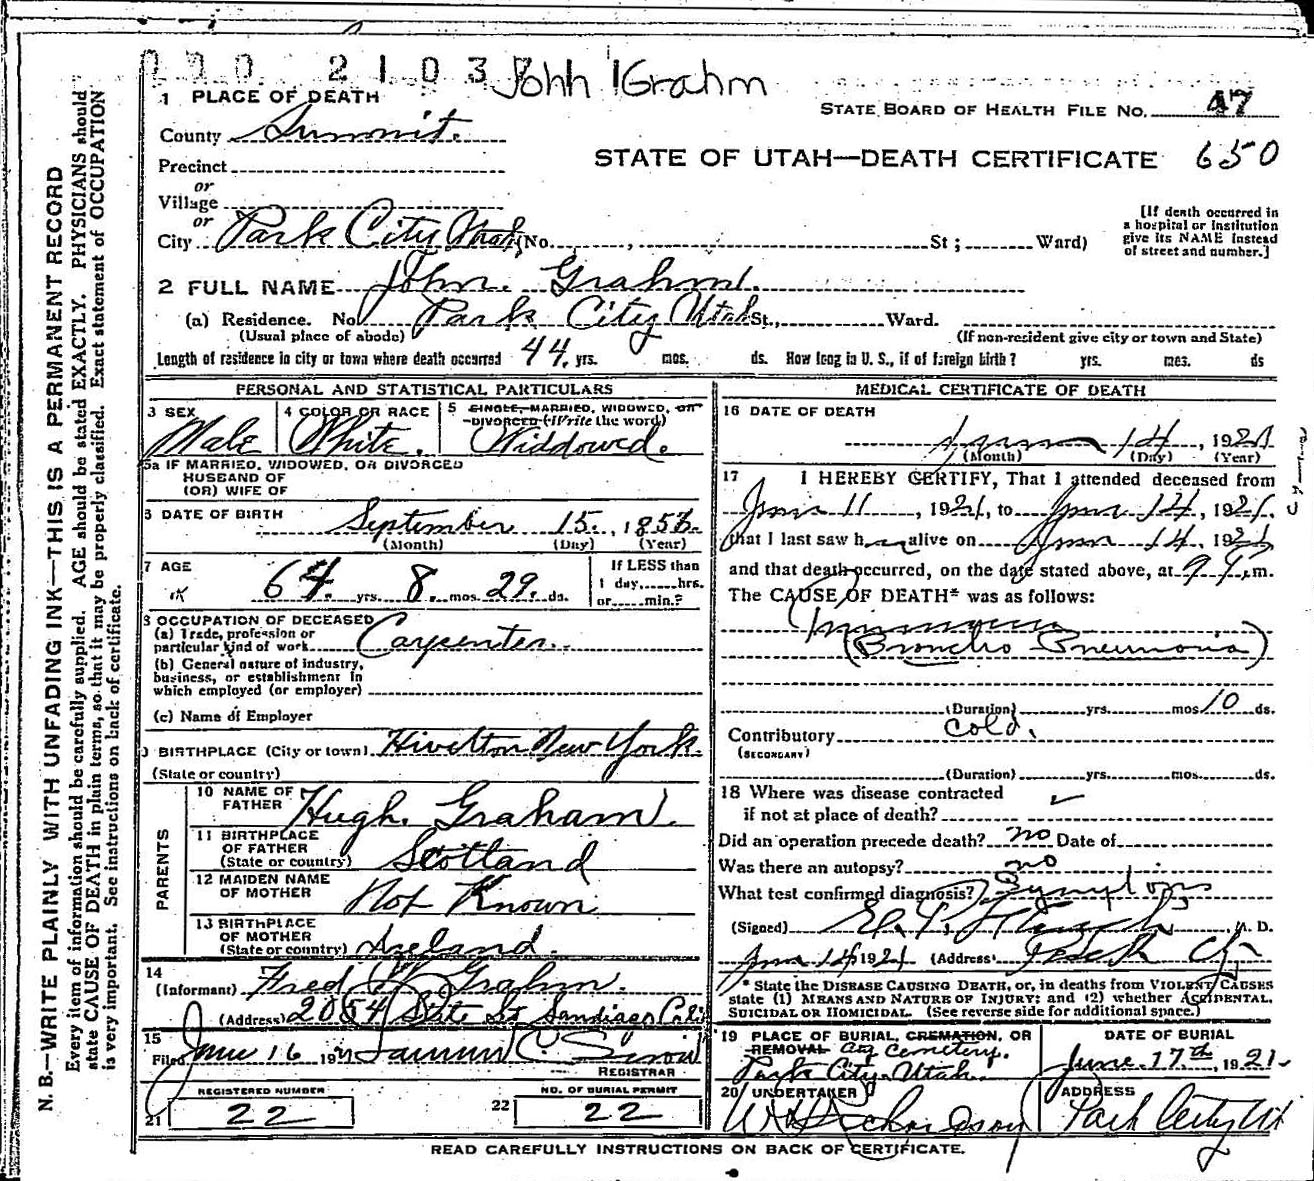 2103 John Grahm
STATE BOARD OF HEALTH FILE NO. 47
1 PLACE OF DEATH
County Summit.
STATE OF UTAH—DEATH CERTIFICATE 650
Precinct
or
Village
or
City Park City Utah (No. , St ; Ward)
[If death occurred in
a hospital or institution
give its NAME instead
of street and number.]
2 FULL NAME John. Grahm.
(a) Residence. No. Park City Utah St., Ward.
(Usual place of abode) (If non-resident give city or town and State)
Length of residence in city or town where death occurred 44. yrs. mos. ds. How long in U. S., if of foreign birth? yrs. mos. ds
PERSONAL AND STATISTICAL PARTICULARS
3 SEX
Male
4 COLOR OR RACE
White.
5 SINGLE, MARRIED, WIDOWED, OR
DIVORCED (Write the word)
Widdowed.
5a IF MARRIED, WIDOWED, OR DIVORCED
HUSBAND OF
(OR) WIFE OF
6 DATE OF BIRTH
September 15. , 185
(Month) (Day) (Year)
7 AGE
64. yrs. 8. mos. 29. ds.
If LESS than
1 day, hrs.
or min.?
8 OCCUPATION OF DECEASED
(a) Trade, profession or
particular kind of work Carpenter.
(b) General nature of industry,
business, or establishment in
which employed (or employer)
(c) Name of Employer
9 BIRTHPLACE (City or town) Hivelton New York.
(State or country)
PARENTS
10 NAME OF
FATHER Hugh. Graham.
11 BIRTHPLACE
OF FATHER
(State or country) Scotland
12 MAIDEN NAME
OF MOTHER Not Known
13 BIRTHPLACE
OF MOTHER
(State or country) Ireland.
14
(Informant) Fred W. Grahm.
(Address) 2054 State St Sandiago Cali
15
Filed June 16 192 C.
REGISTRAR
REGISTERED NUMBER
21 22
NO. OF BURIAL PERMIT
22 22
MEDICAL CERTIFICATE OF DEATH
16 DATE OF DEATH
June 14 , 1921
(Month) (Day) (Year)
17 I HEREBY CERTIFY, That I attended deceased from
June 11 , 1921, to June 14 , 1921.
that I last saw h alive on June 14 , 1921
and that death occurred, on the date stated above, at 9 m.
The CAUSE OF DEATH* was as follows:
(Broncho Pneumonia)
(Duration) yrs. mos 10 ds.
Contributory Cold.
(SECONDARY)
(Duration) yrs. mos. ds.
18 Where was disease contracted
if not at place of death?
Did an operation precede death? no Date of
Was there an autopsy? no
What test confirmed diagnosis? Symptoms
(Signed) , M. D.
June 14 1921 (Address) Park City
* State the DISEASE CAUSING DEATH, or, in deaths from VIOLENT CAUSES
state (1) MEANS AND NATURE OF INJURY; and (2) whether ACCIDENTAL,
SUICIDAL OR HOMICIDAL. (See reverse side for additional space.)
19 PLACE OF BURIAL, CREMATION, OR
REMOVAL City Cemetery.
Park City Utah.
DATE OF BURIAL
June 17th , 1921.
20 UNDERTAKER
W Richardson
ADDRESS
Park City Ut
READ CAREFULLY INSTRUCTIONS ON BACK OF CERTIFICATE.
N. B.—WRITE PLAINLY WITH UNFADING INK—THIS IS A PERMANENT RECORD
Every item of information should be carefully supplied. AGE should be stated EXACTLY. PHYSICIANS should
state CAUSE OF DEATH in plain terms, so that it may be properly classified. Exact statement of OCCUPATION
is very important. See instructions on back of certificate.